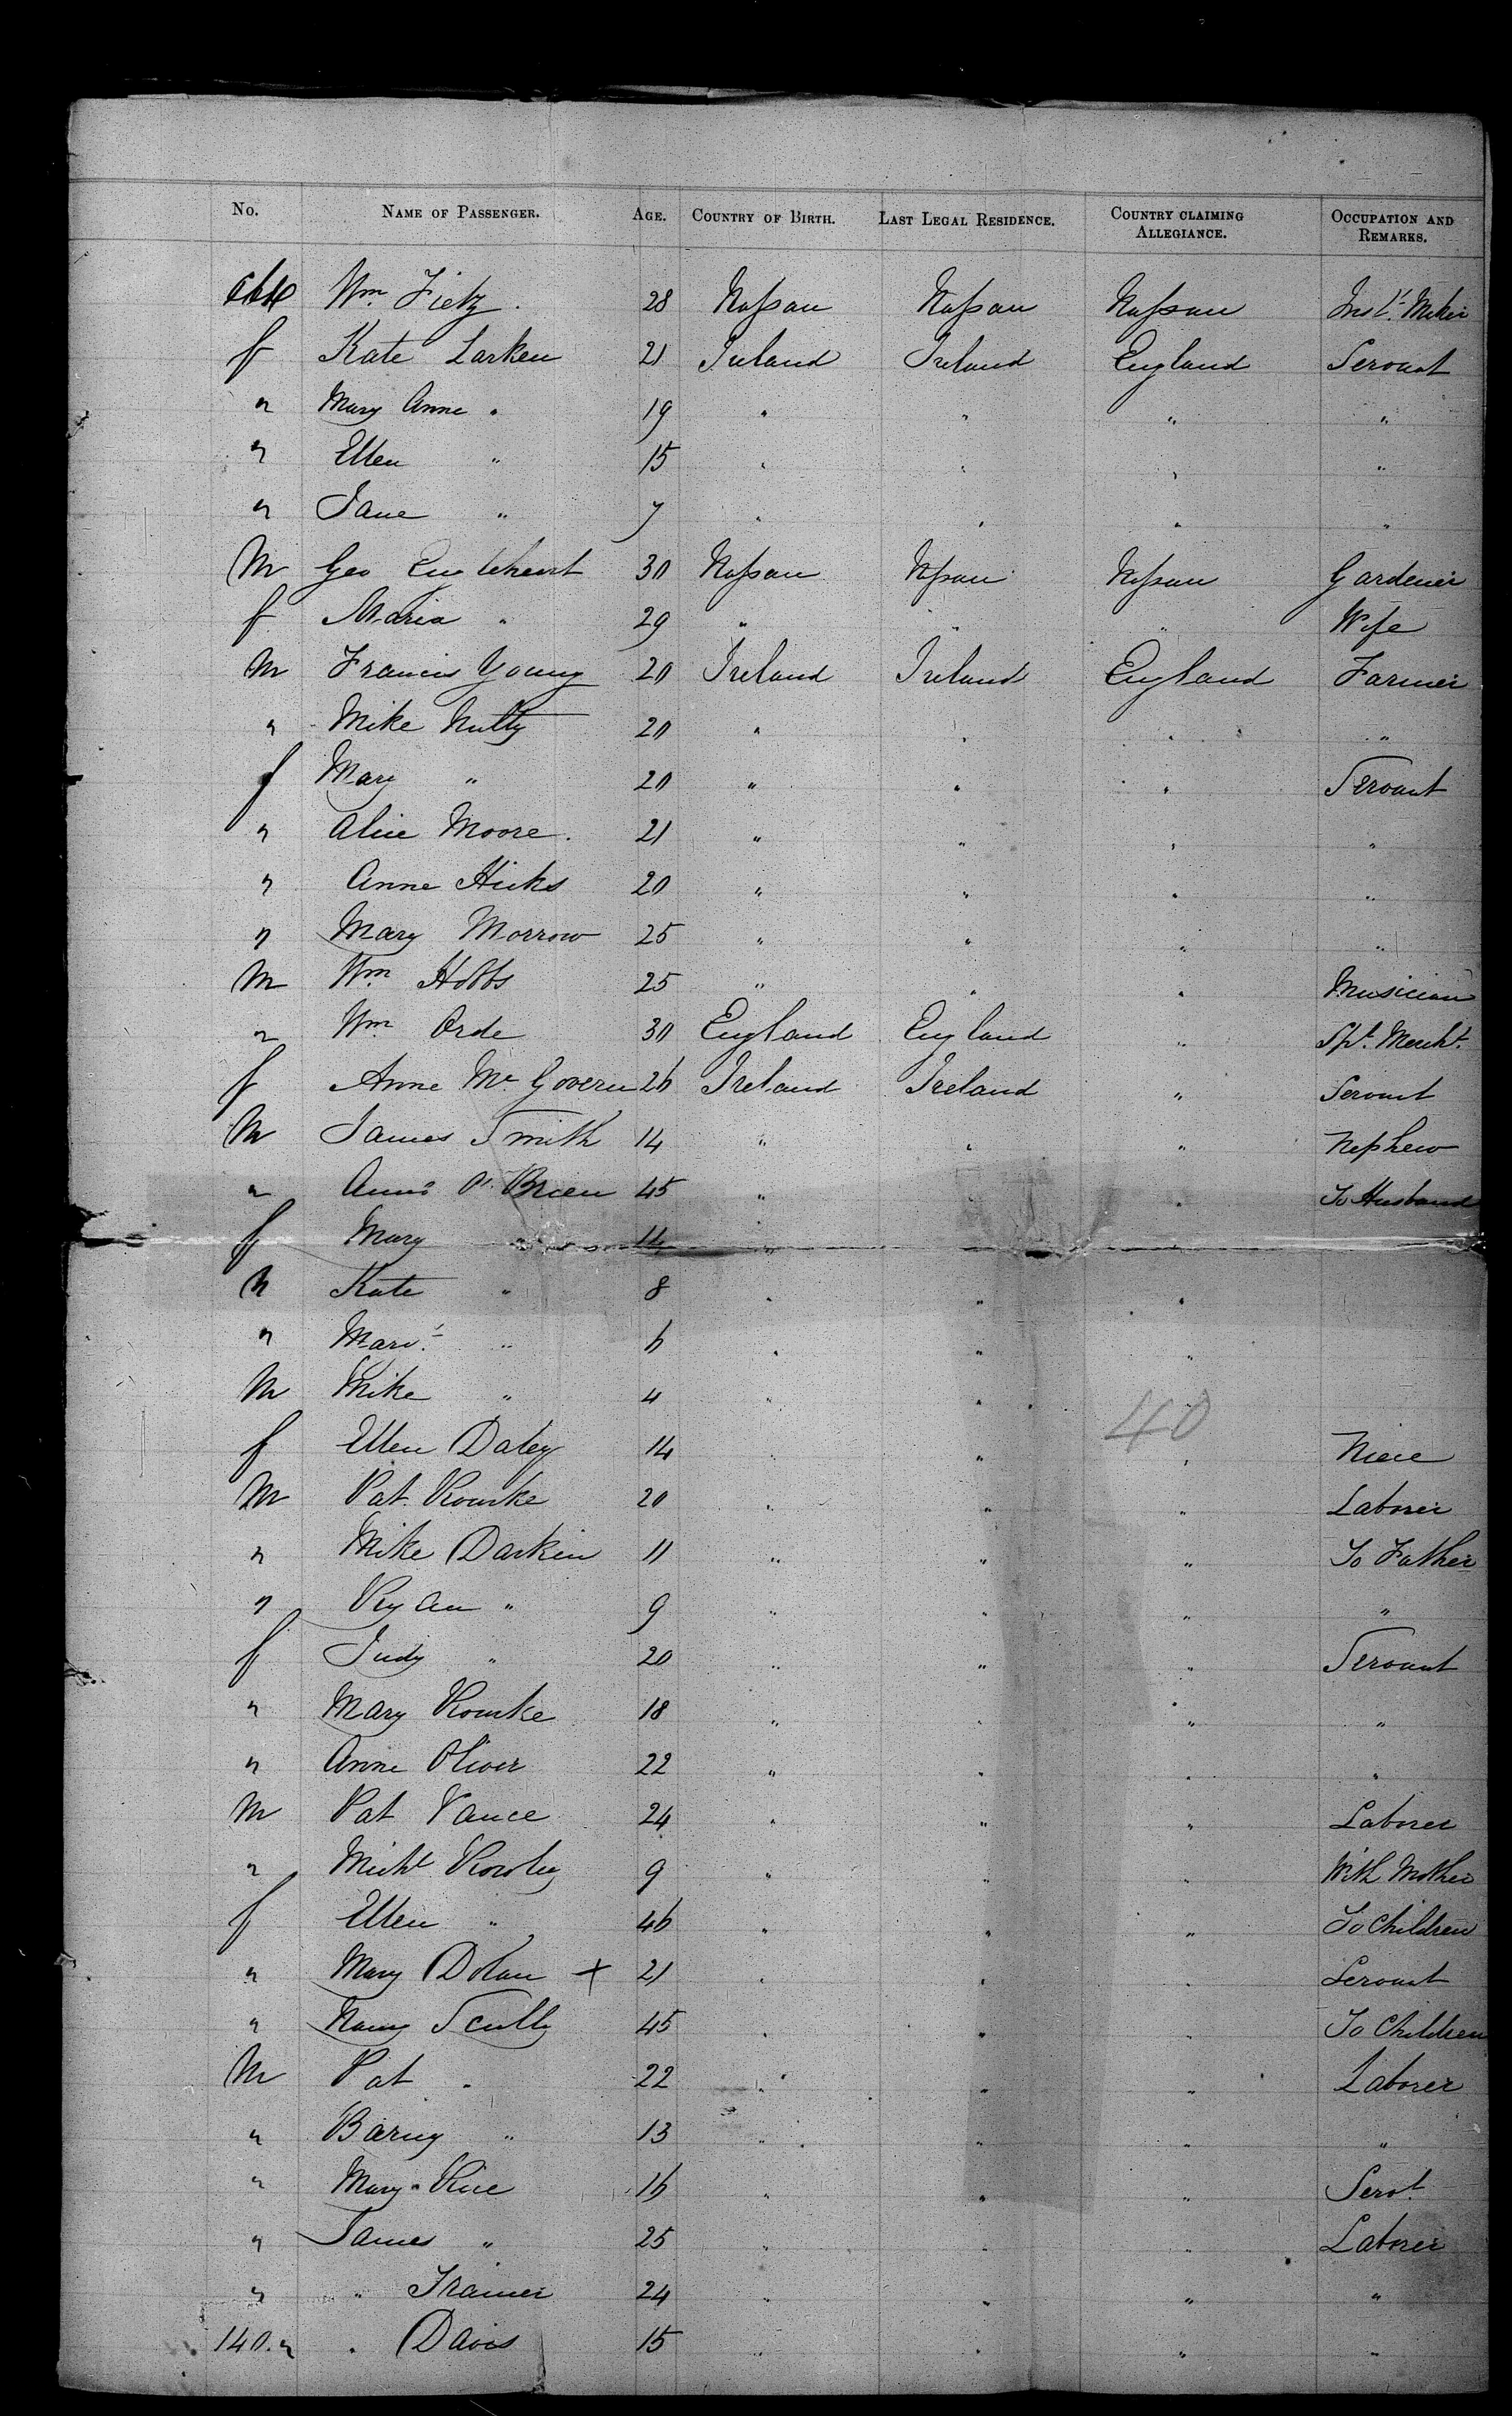 No. NAME OF PASSENGER. AGE. COUNTRY OF BIRTH. LAST LEGAL RESIDENCE. COUNTRY CLAIMING ALLEGIANCE. OCCUPATION AND REMARKS.
Wm Fietz. 28 Nassau Nassau Nassau Inst. Maker
f Kate Larken 21 Ireland Ireland England Servant
" Mary Anne " 19 " " " "
" Ellen " 15 " " " "
" Jane " 7 " " " "
M Geo Engleheart 30 Nassau Nassau Nassau Gardener
f Maria " 29 " " " Wife
M Francis Young 20 Ireland Ireland England Farmer
" Mike Nulty 20 " " " "
f Mary " 20 " " " Servant
" Alice Moore. 21 " " " "
" Anne Hicks 20 " " " "
" Mary Morrow 25 " " " "
M Wm Hobbs 25 " " " Musician
" Wm Orde 30 England England " Spt. Mercht.
f Anne Mc Govern 26 Ireland Ireland " Servant
M James Smith 14 " " " Nephew
" Anne O'Brien 45 " " " To Husband
f Mary " 14 "
Kate " 8 " " "
" Marg. " 6 " " "
M Mike " 4 " " "
40
f Ellen Daley 14 " " " Niece
M Pat Rourke 20 " " " Laborer
" Mike Darkin 11 " " " To Father
" Ryan " 9 " " " "
f Judy " 20 " " " Servant
" Mary Rourke 18 " " " "
" Anne Oliver 22 " " " "
M Pat Vance 24 " " " Laborer
" Michl Rowley 9 " " " With Mother
f Ellen " 46 " " " To Children
" Mary Dolan + 21 " " " Servant
" Nancy Scully 45 " " " To Children
M Pat " 22 " " " Laborer
" Barny " 13 " " " "
" Mary Rice 16 " " " Servt.
" James " 25 " " " Laborer
" " Trainer 24 " " " "
140. " " Davis 15 " " " "